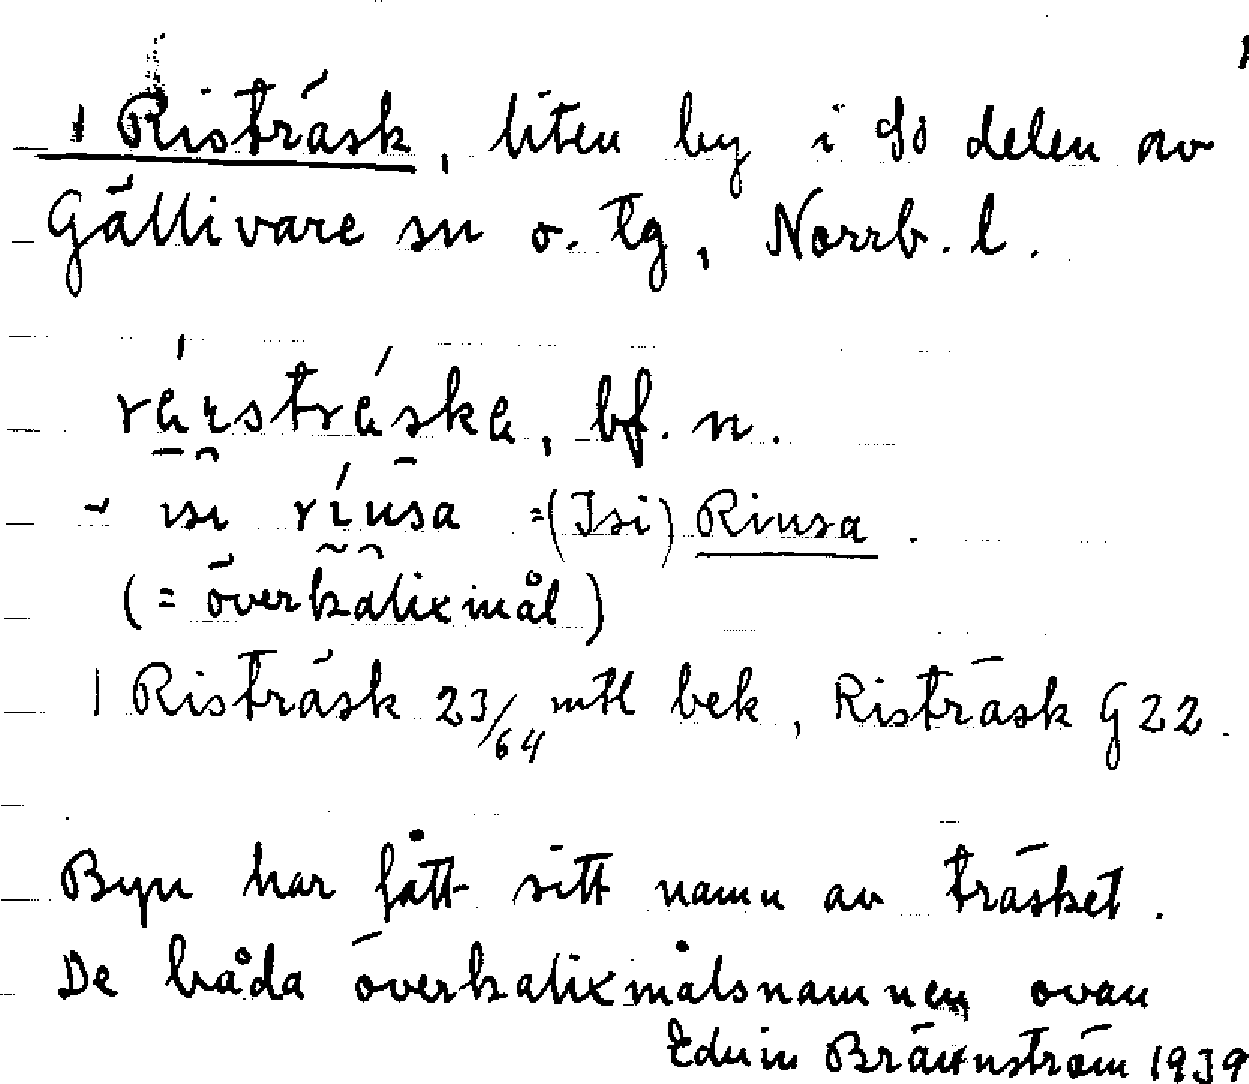 1 Risträsk, liten by i SO delen av
Gällivare sn o. tg, Norrb. l.
bf. n.
= (Isi) Riusa.
(= överkalixmål)
1 Risträsk 23/64 mtl bek, Risträsk G 22.
Byn har fått sitt namn av träsket.
De båda överkalixmålsnamnen ovan
Edvin Brännström 1939